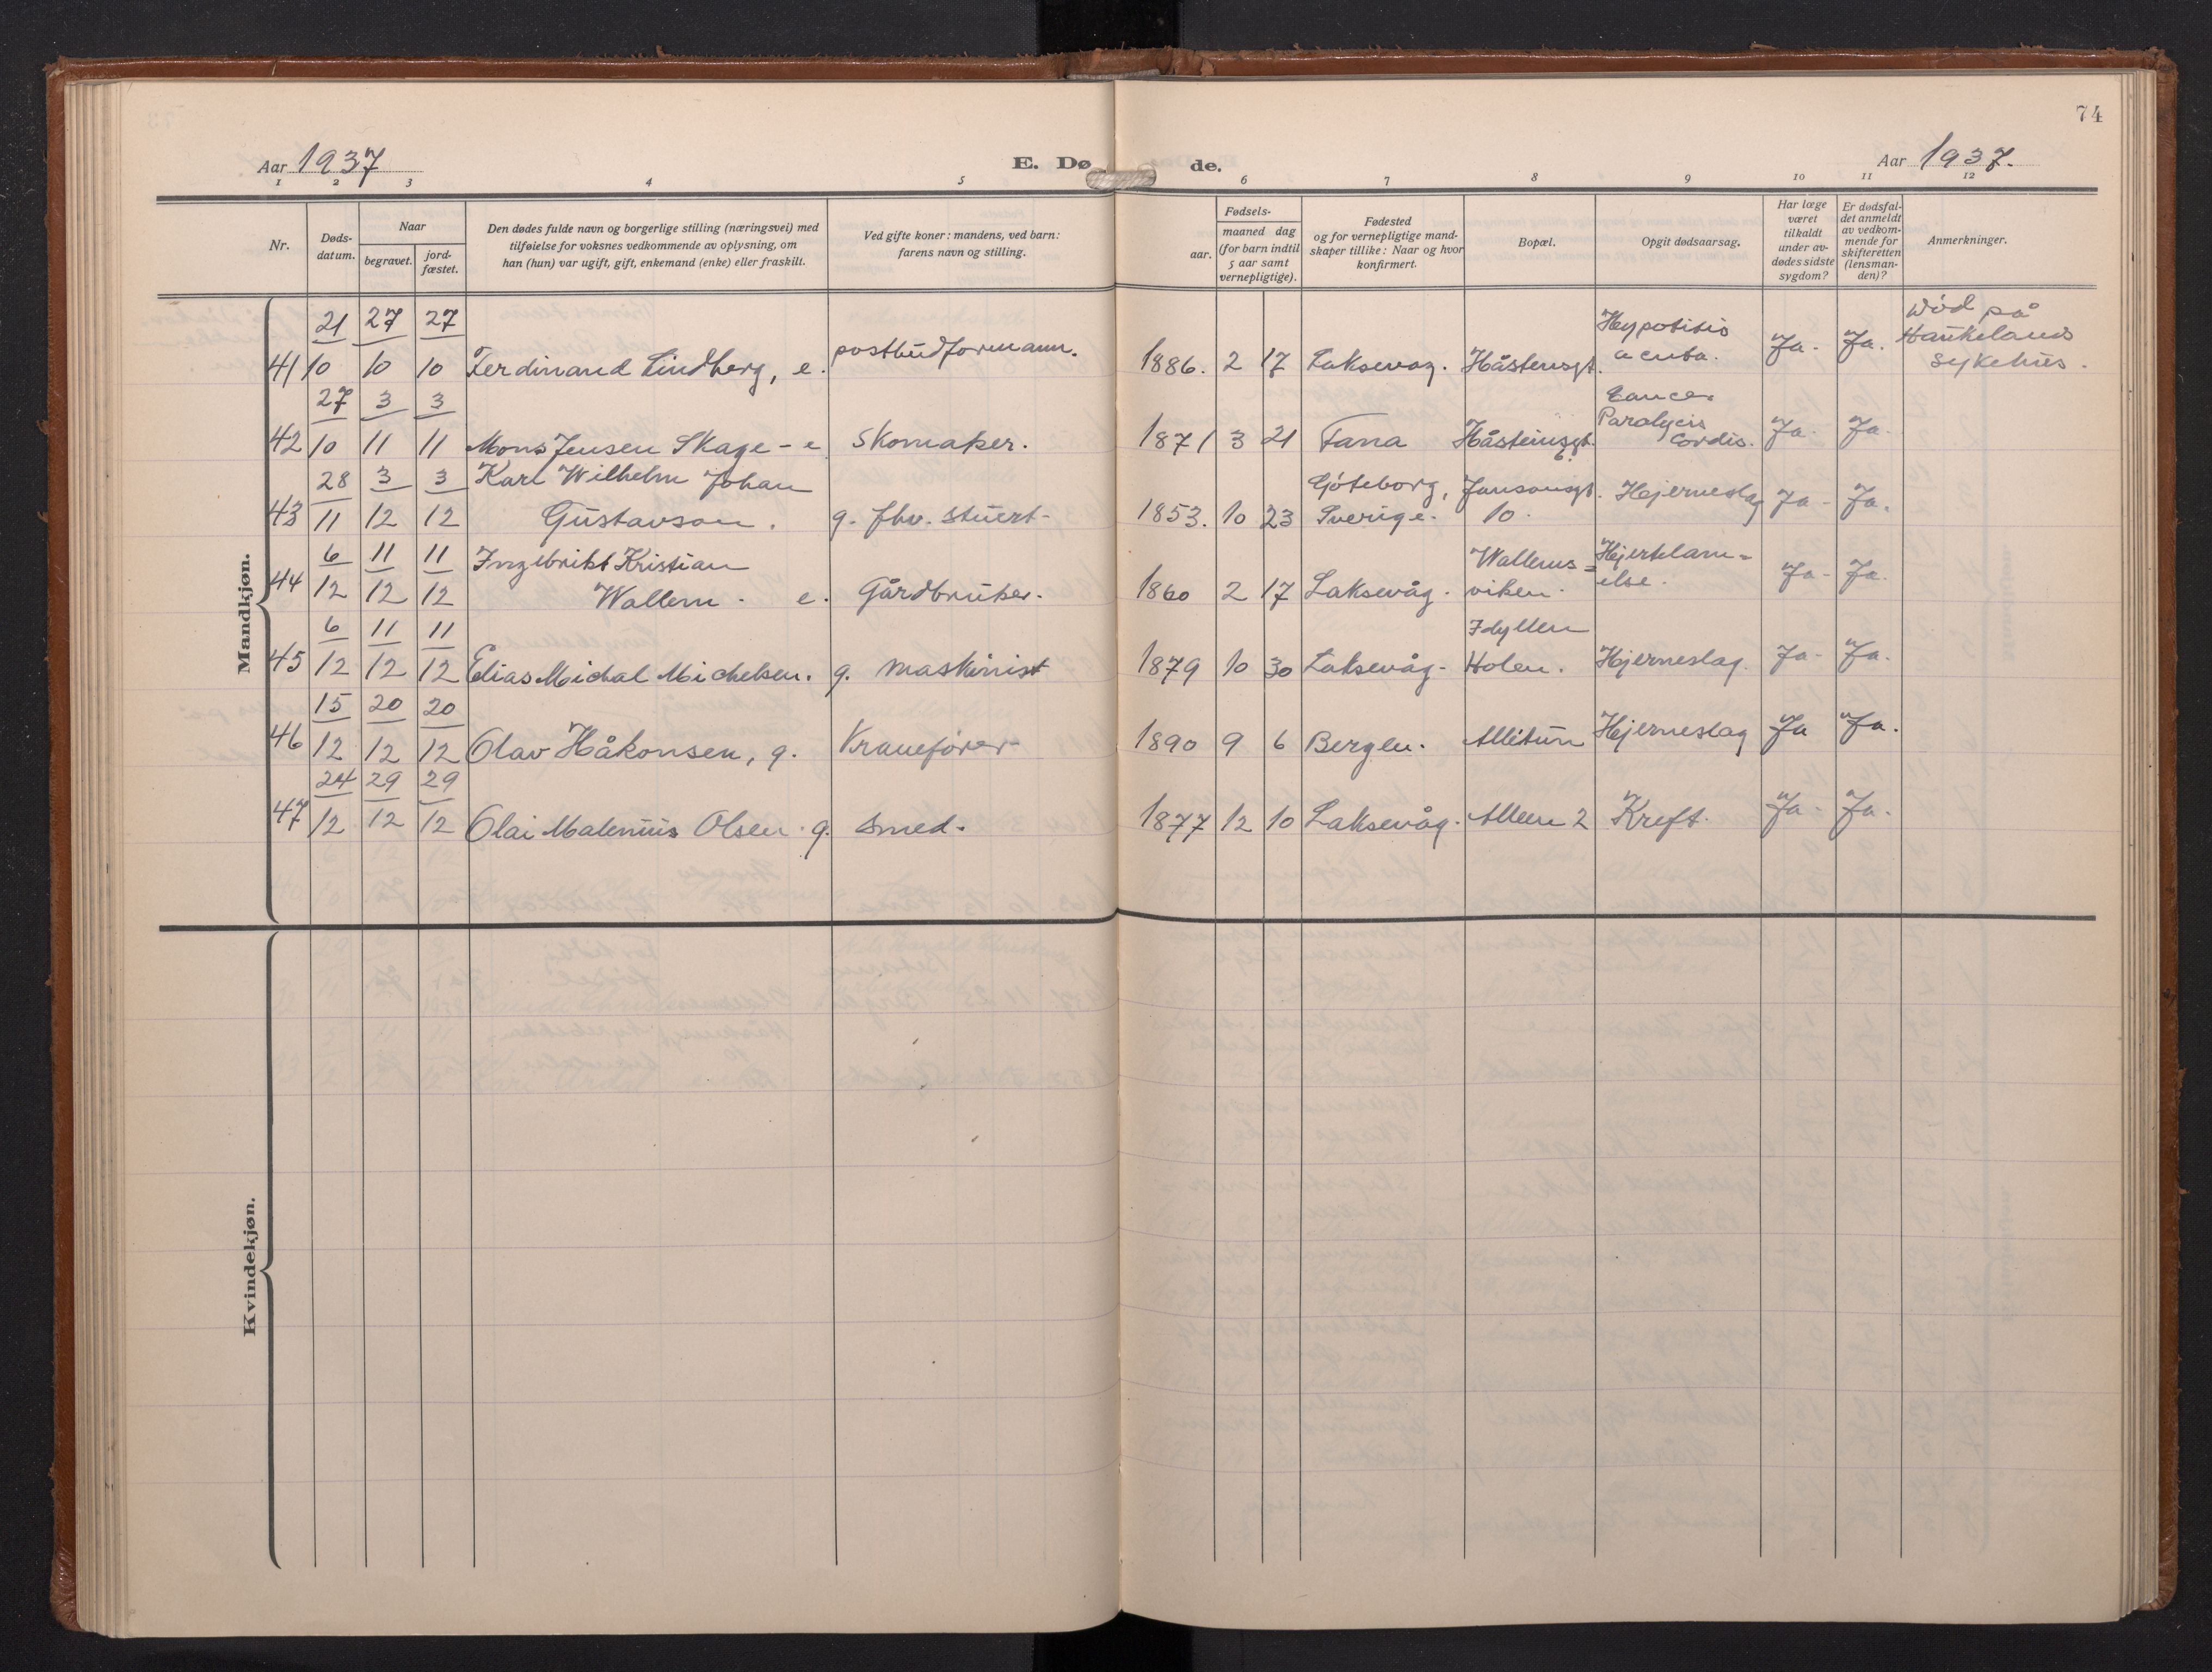 74
Aar 1937
E. Dø
de.
Aar 1937.
1 2 3 4 5 6 7 8 9 10 11 12
Nr.
Døds-
datum.
Naar
begravet.
jord-
fæstet.
Den dødes fulde navn og borgerlige stilling (næringsvei) med
tilføielse for voksnes vedkommende av oplysning, om
han (hun) var ugift, gift, enkemand (enke) eller fraskilt.
Ved gifte koner: mandens, ved barn:
farens navn og stilling.
Fødsels-
aar.
maaned dag
(for barn indtil
5 aar samt
vernepligtige).
Fødested
og for vernepligtige mand-
skaper tillike: Naar og hvor
konfirmert.
Bopæl.
Opgit dødsaarsag.
Har læge
været
tilkaldt
under av-
dødes sidste
sygdom?
Er dødsfal-
det anmeldt
av vedkom-
mende for
skifteretten
(lensman-
den)?
Anmerkninger.
Mandkjøn.
21 27 27 Død på
41 10 10 10 Ferdinand Lindberg, e. postbudformann. 1886. 2 17 Laksevåg. Håsteinsgt. Ja. Ja. Haukelands
sykehus.
27 3 3 Cancer
Paralycis
42 10 11 11 Mons Jensen Skage - e skomaker. 1871 3 21 Fana Håsteinsgt. Cordis. Ja. Ja.
28 3 3 Karl Wilhelm Johan Göteborg, Jansonsgt.
43 11 12 12 Gustavson. g. fhv. stuert - 1853. 10 23 Sverige. 10. Hjerneslag Ja - Ja.
6 11 11 Ingebrikt Kristian Wallems= Hjertelam=
44 12 12 12 Wallem. e. Gårdbruker. 1860 2 17 Laksevåg. viken. else. Ja - Ja.
6 11 11 Idyllen
45 12 12 12 Elias Michal Michelsen. g. maskinist 1879 10 30 Laksevåg - Holen. Hjerneslag. Ja - Ja.
15 20 20
46 12 12 12 Olav Håkonsen, g. Kranefører - 1890 9 6 Bergen. Allétun Hjerneslag Ja Ja.
24 29 29
47 12 12 12 Olai Malenius Olsen. g. smed. 1877 12 10 Laksevåg. Alleen 2 Kreft. Ja - Ja.
Kvindekjøn.